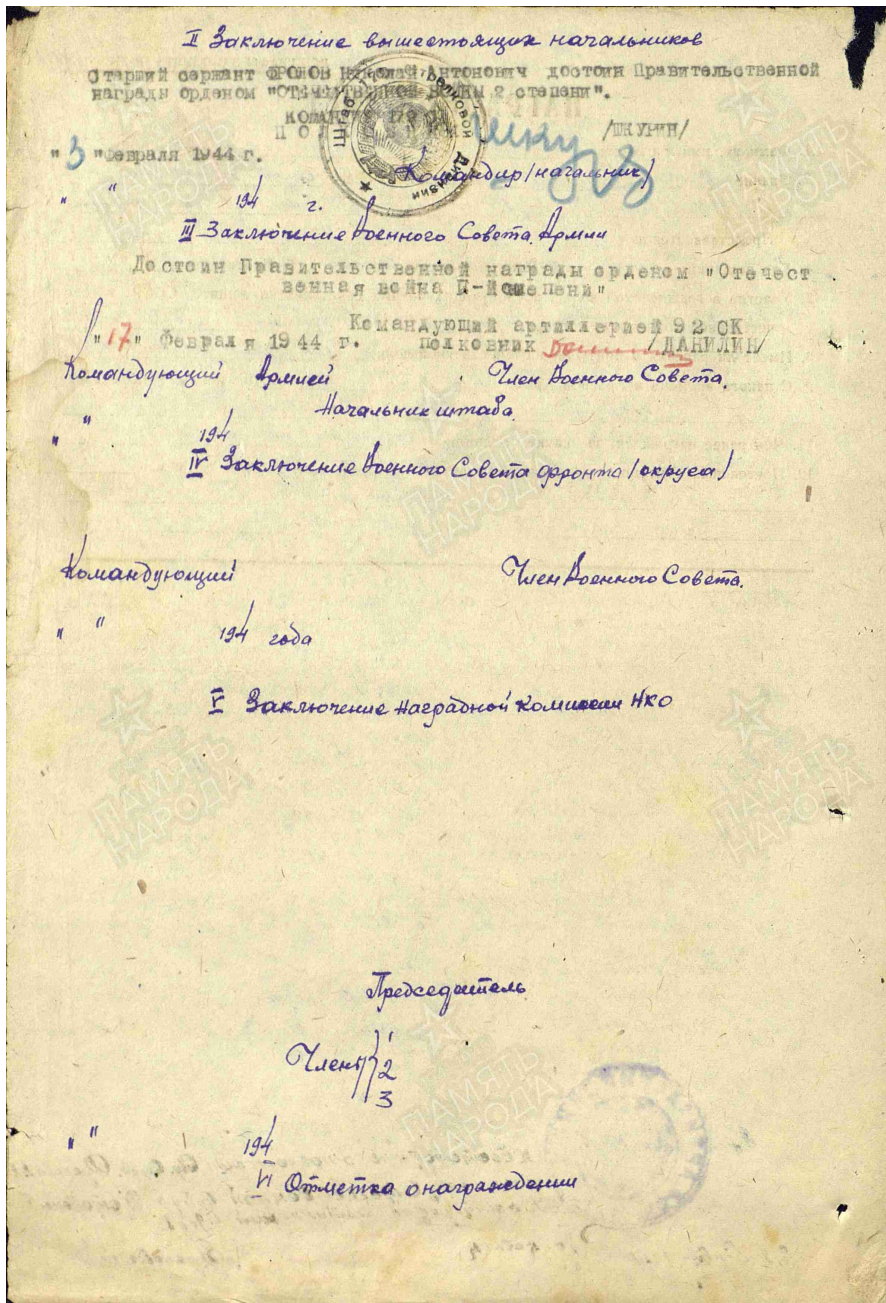 II Заключение вышестоящих начальников
Старший сержант ФРОЛОВ Николай Антонович достоин Правительственной
награды орденом "ОТЕЧЕСТВЕННОЙ ВОЙНЫ 2 степени".
КОМАНДИР СД
/ШКУРИН/
"3" Февраля 1944 г.
Командир/начальник/
" " 194 г.
III Заключение Военного Совета Армии
Достоин Правительственной награды орденом "Отечест
венная война II-й степени"
Командующий артиллерией 92 СК
"17" Февраля 1944 г. полковник /ДАНИЛИН/
Командующий Армией Член Военного Совета.
Начальник штаба
" " 194
IV Заключение Военного Совета фронта/округа/
Командующий Член Военного Совета.
" " 194 года
V Заключение наградной комиссии НКО
Председатель
Члены 1
2
3
" " 194
VI Отметка о награждении
Штаб Стрелковой Дивизии
ПАМЯТЬ НАРОДА
ПАМЯТЬ НАРОДА
ПАМЯТЬ НАРОДА
ПАМЯТЬ НАРОДА
ПАМЯТЬ НАРОДА